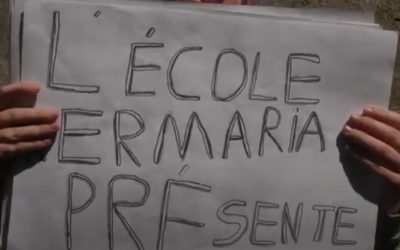 L'ÉCOLE
ERMARiA
PRÉSENTE